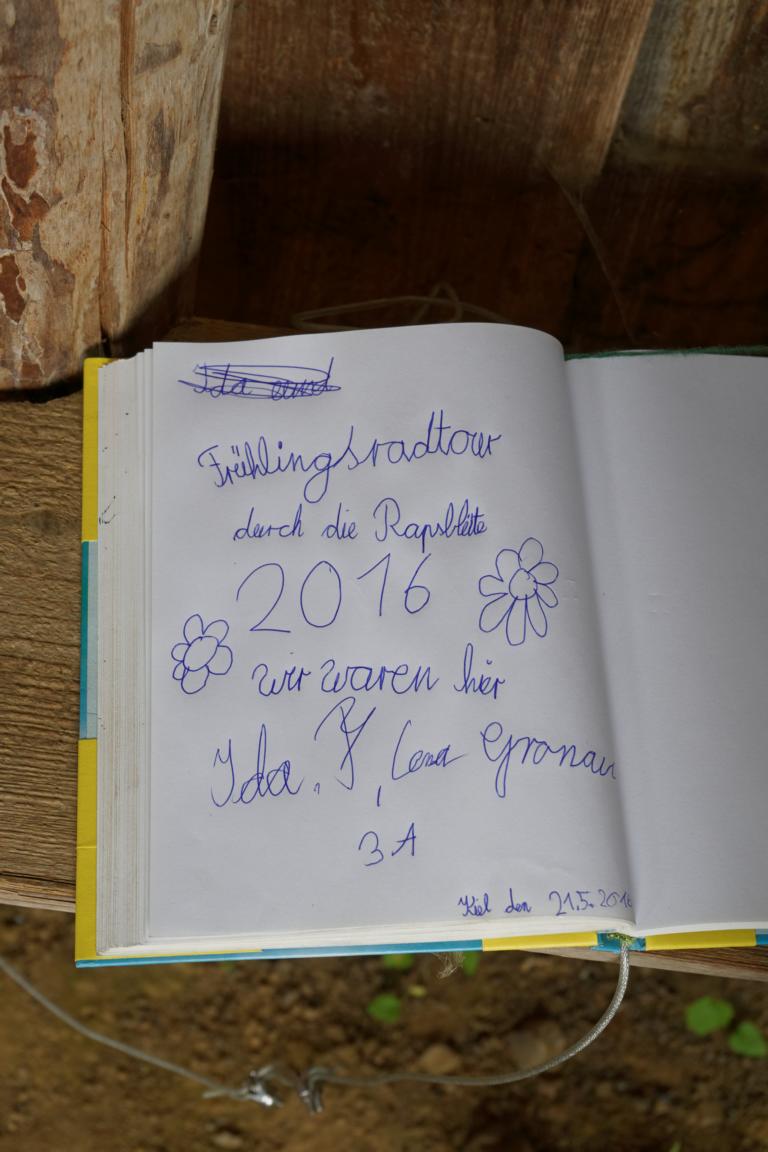 Ida und
Frühlingsradtour
durch die Rapsblüte
2016
wir waren hier
Ida, Lena Gronau
3A
Kiel den 21.5.2016